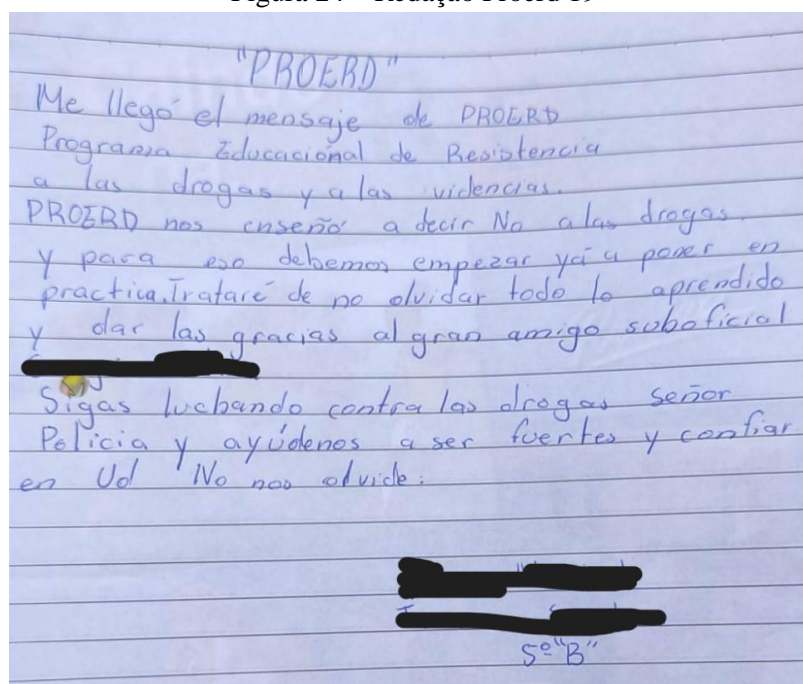 Figura 24 – Redação Proerd 19
"PROERD"
Me llegó el mensaje de PROERD
Programa Educacional de Resistencia
a las drogas y a las videncias.
PROERD nos enseño a decir No a las drogas.
y para eso debemos empezar ya a poner en
practica. Trataré de no olvidar todo lo aprendido
y dar las gracias al gran amigo suboficial
Sigas luchando contra las drogas señor
Policia y ayúdenos a ser fuertes y confiar
en Ud No nos olvide.
5º "B"